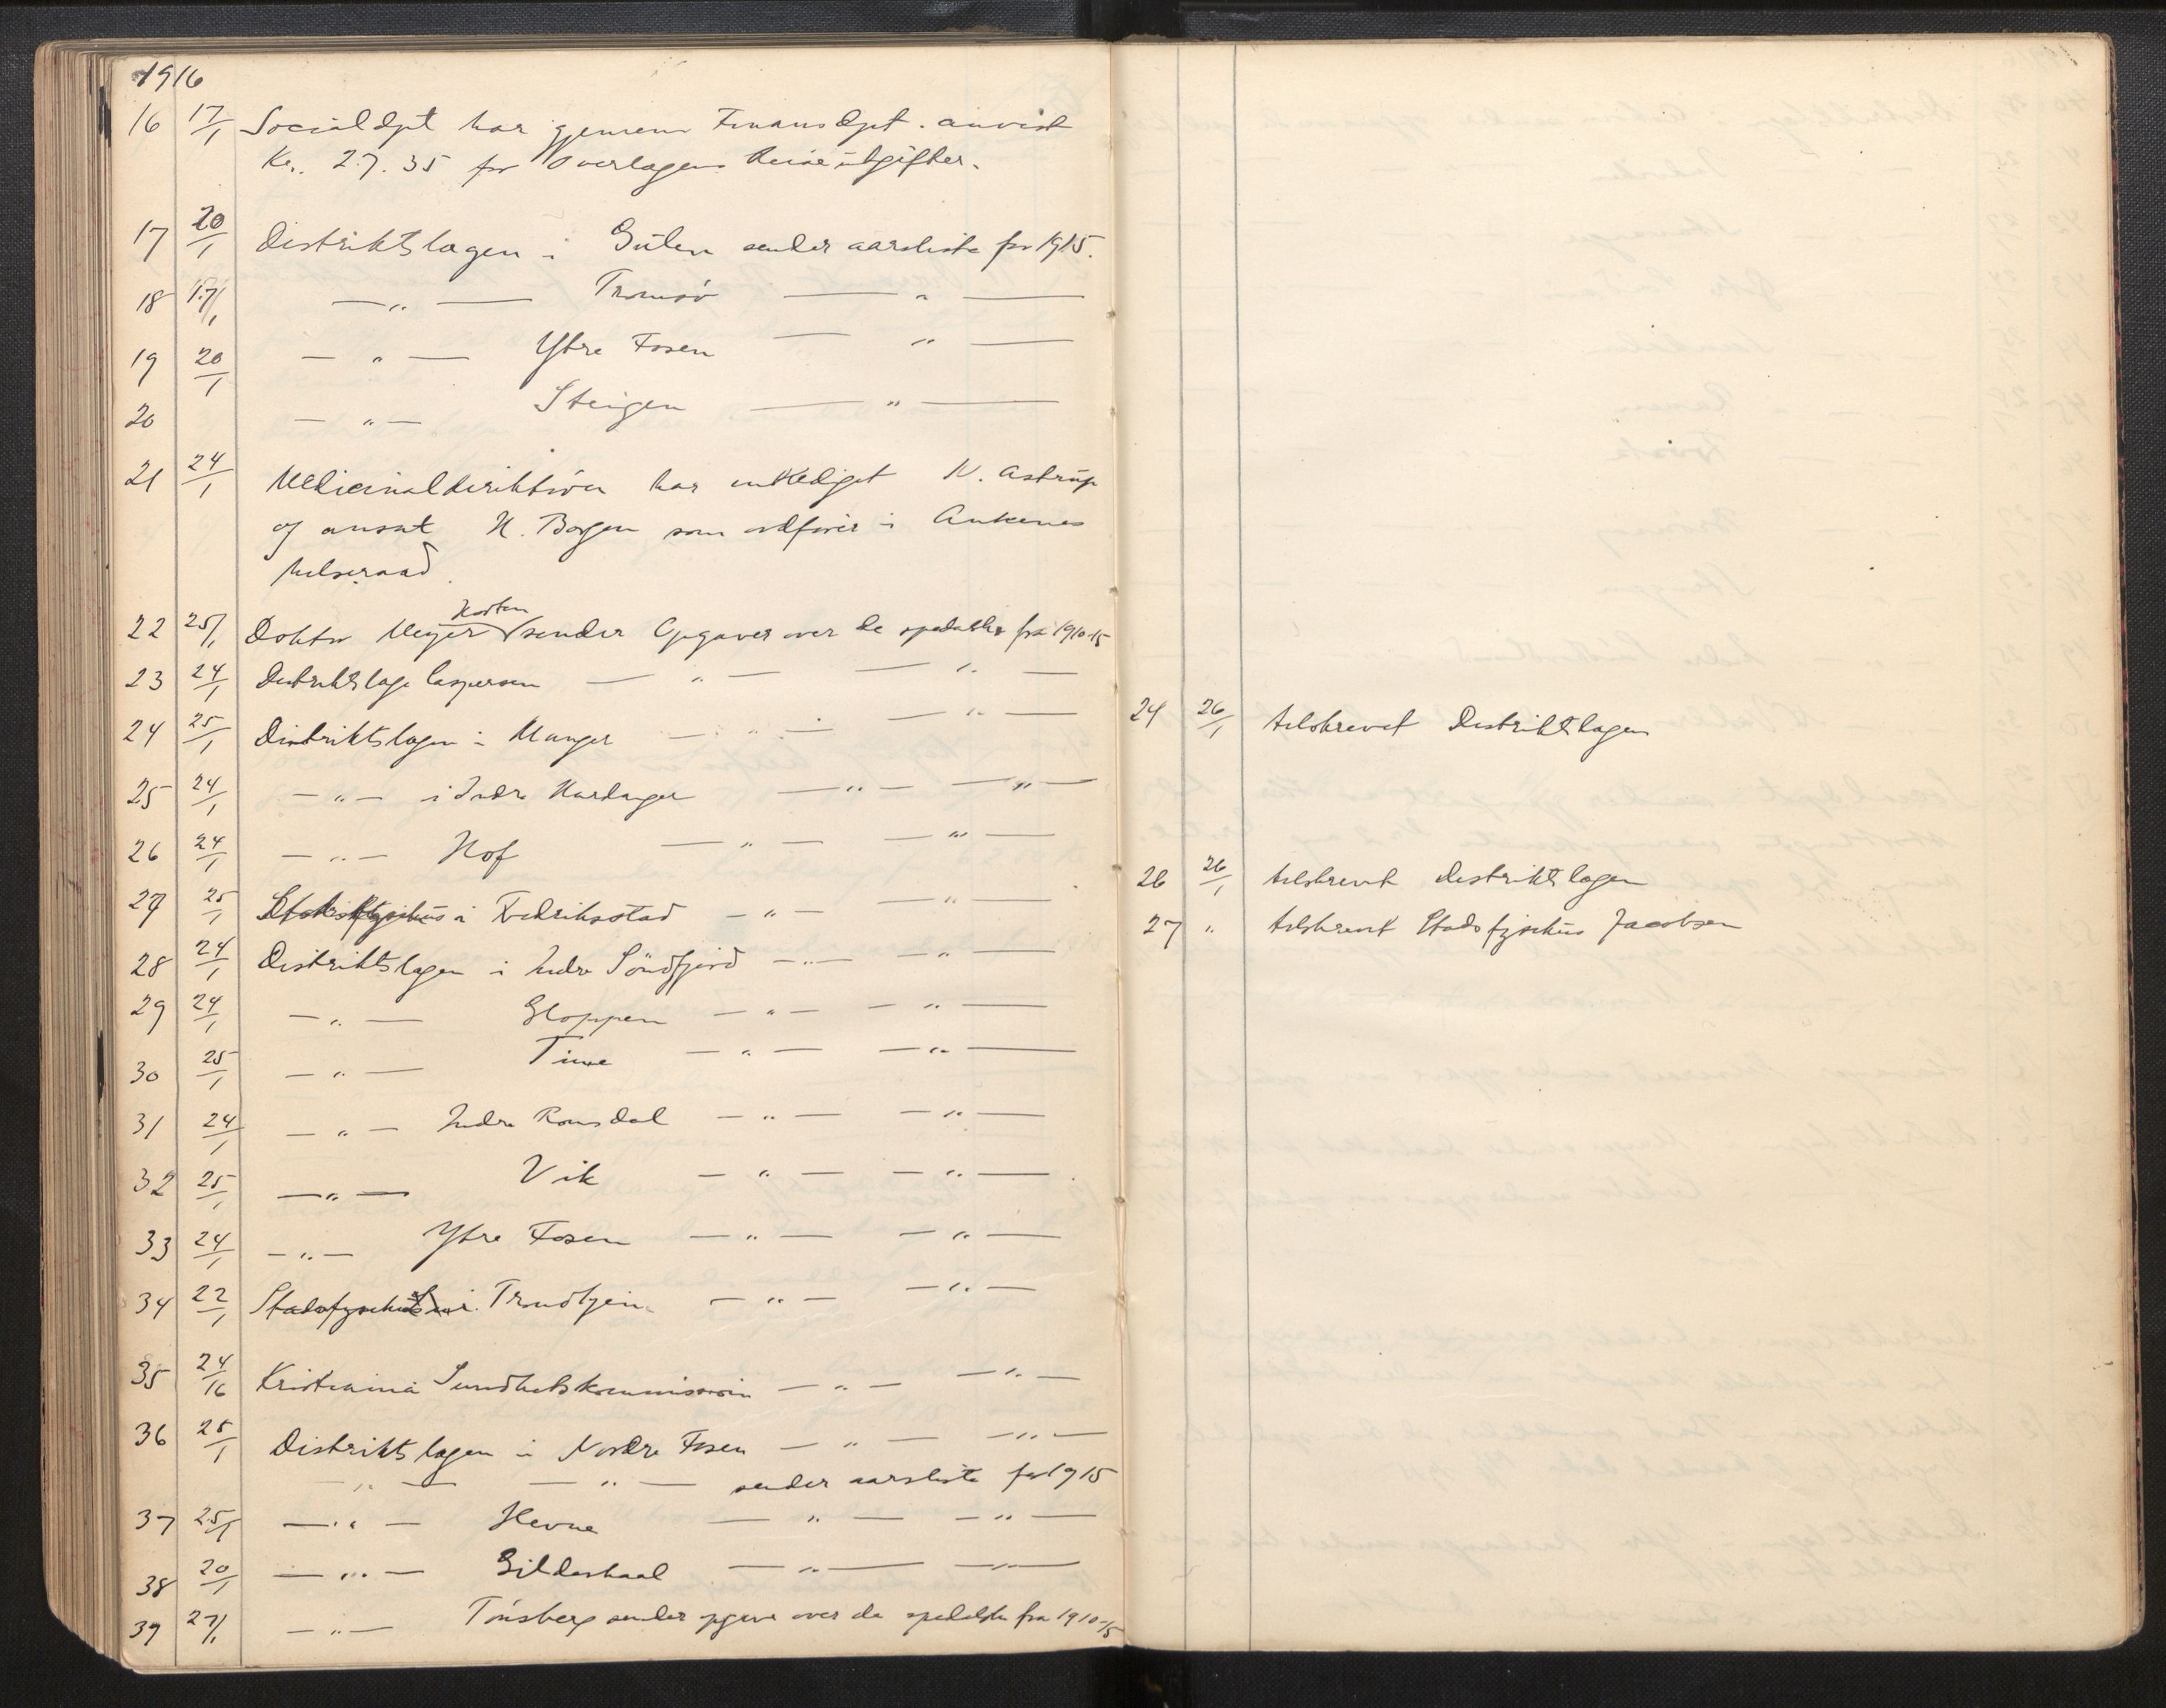 1916
16 17/1 Socialdpt har gjennem Finansdpt. anvist
Kr. 27.35 for Overlægens Reiseutgifter.
17 20/1 Distriktslægen i Gulen sender aarsliste for 1915.
18 17/1 — „ — Tromsö — „ —
19 20/1 — „ — Ytre Fosen — „ —
20 — „ — Steigen — „ —
21 24/1 Medicinaldirektøren har entlediget K. Astrup
og ansat H. Borgen som ordfører i Ankenes
helseraad.
Horten
22 25/1 Doktor Meyer sender Opgaver over de spedalske fra 1910-15
23 24/1 Distriktslæge Caspersen — „ — — „ —
24 25/1 Distriktslægen i Manger — „ — — „ —
25 24/1 — „ — i Indre Hardanger — „ — — „ —
26 24/1 — „ — Hof — „ — — „ —
27 25/1 Stadsfysikus i Fredriksstad — „ — — „ —
28 24/1 Distriktslægen i Indre Söndfjord — „ — — „ —
29 24/1 — „ — Gloppen — „ — — „ —
30 25/1 — „ — Time — „ — — „ —
31 24/1 — „ — Indre Romsdal — „ — — „ —
32 25/1 — „ — Vik — „ — — „ —
33 24/1 — „ — Ytre Fosen — „ — — „ —
34 22/1 Stadsfysikus i Trondhjem — „ — — „ —
35 24/16 Kristiania Sundhetskommission — „ — — „ —
36 25/1 Distriktslægen i Nordre Fosen — „ — — „ —
— „ — — „ — sender aarsliste for 1915
37 25/1 — „ — Hevne — „ — — „ —
38 20/1 — „ — Gildeskaal — „ — — „ —
39 27/1 — „ — Tönsberg sender opgave over de spedalske fra 1910-15
24 26/1 tilskrevet Distriktslægen
26 26/1 tilskrevet Distriktslægen
27 „ tilskrevet Stadsfysikus Jacobsen